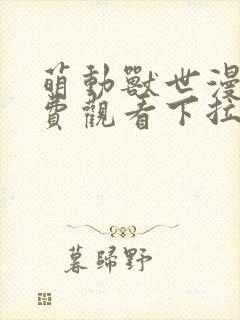 萌動獸世漫
費觀看下拉
暮歸野